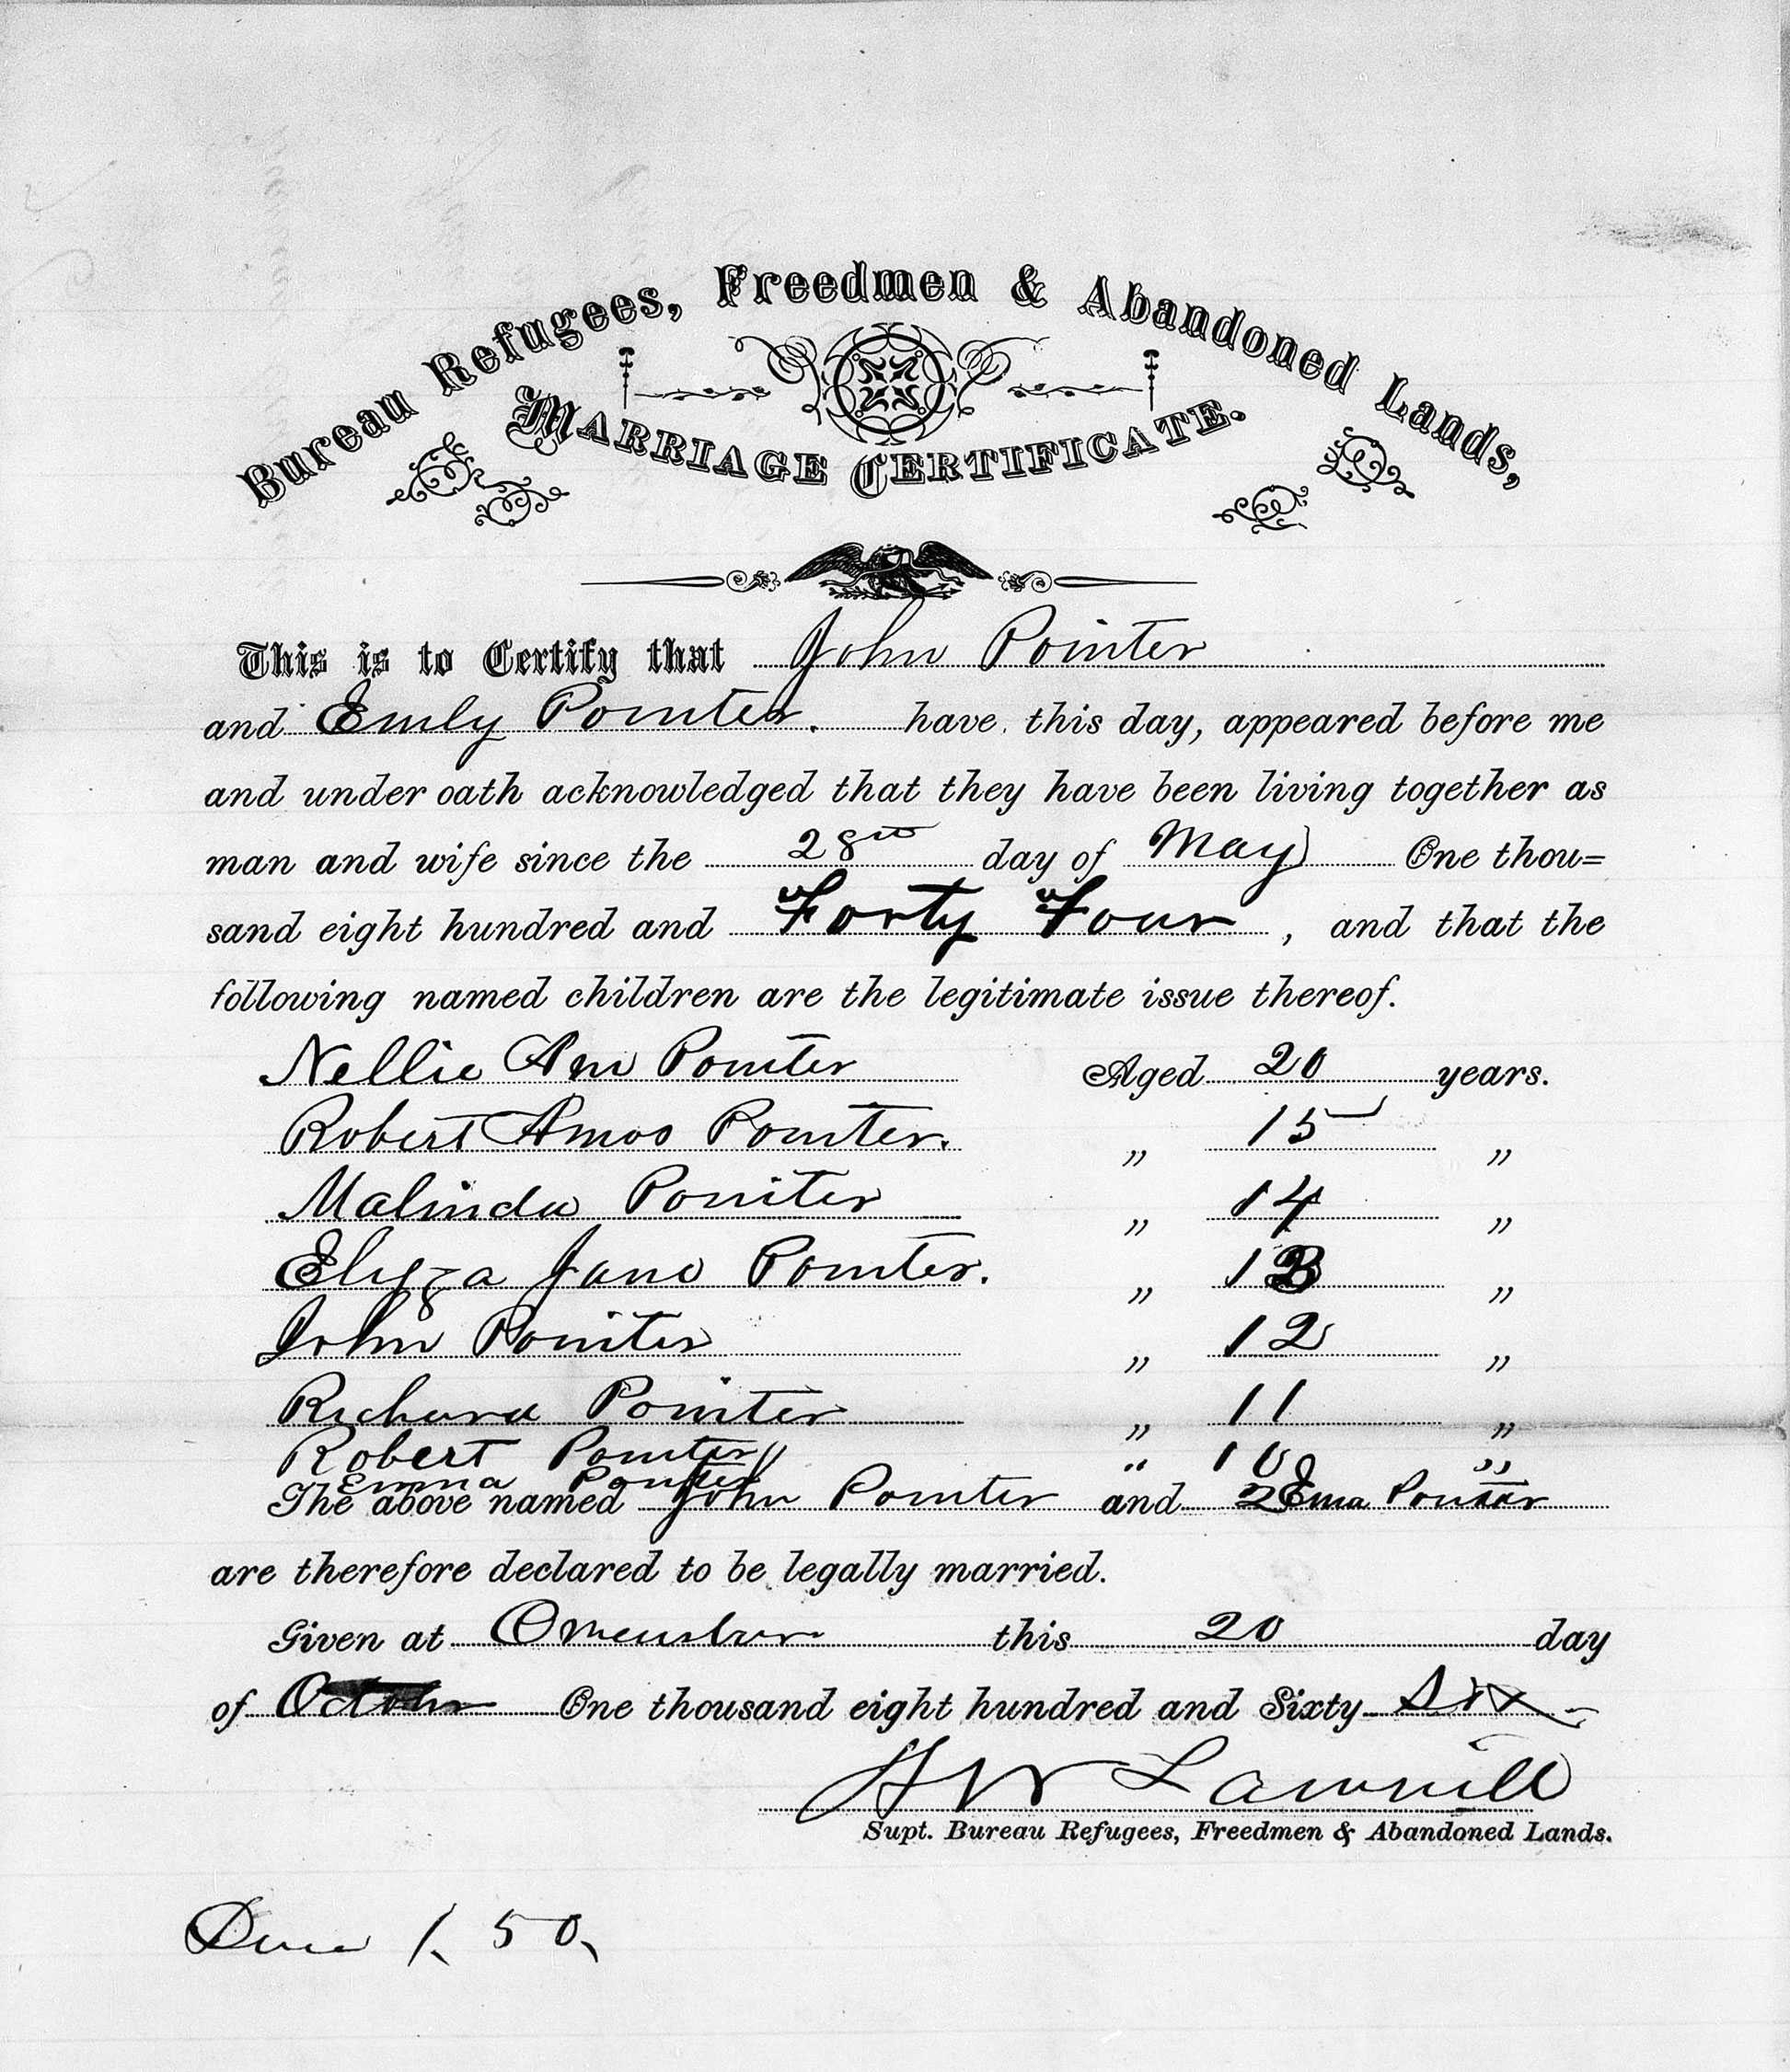 Bureau Refugees, Freedmen & Abandoned Lands,
MARRIAGE CERTIFICATE.
This is to Certify that John Pointer
and Emily Pointer. have this day, appeared before me
and under oath acknowledged that they have been living together as
man and wife since the 28th day of May One thou=
sand eight hundred and Forty Four, and that the
following named children are the legitimate issue thereof.
Nellie Ann Pointer Aged 20 years.
Robert Amos Pointer. " 15 "
Malinda Pointer " 14 "
Eliza Jane Pointer. " 13 "
John Pointer " 12 "
Richard Pointer " 11 "
Robert Pointer " 10 "
Emma Pointer 2
The above named John Pointer and Ema Pointer
are therefore declared to be legally married.
Given at this 20 day
of October One thousand eight hundred and Sixty Six
H W
Supt. Bureau Refugees, Freedmen & Abandoned Lands.
1.50